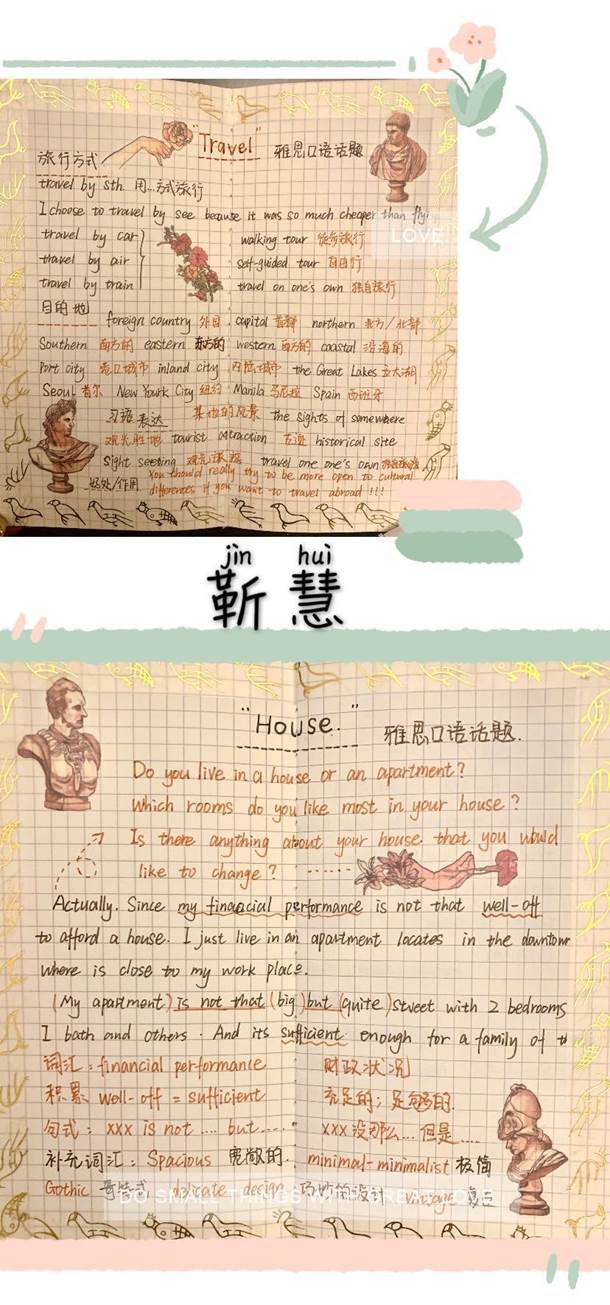 "Travel"
雅思口语话题
旅行方式
travel by sth. 用...方式旅行
I choose to travel by see because it was so much cheaper than flying
LOVE
travel by car
walking tour 徒步旅行
travel by air
self-guided tour 自由行
travel by train
travel on one's own 独自旅行
目的地
foreign country 外国 capital 首都 northern 北方/北部
Southern 南方的 eastern 东方的 western 西方的 coastal 沿海的
Port city 港口城市 inland city 内陆城市 the Great Lakes 五大湖
Seoul 首尔 New Yourk City 纽约 Manila 马尼拉 Spain 西班牙
习语表达 某地的风景 the sights of somewhere
观光胜地 tourist attraction 古迹 historical site
Sight seeing 观光游览 travel one one's own 独自旅游
好处/作用 You should really try to be more open to cultural
differences if you want to travel abroad!!!
jìn huì
靳慧
"House."
雅思口语话题.
Do you live in a house or an apartment?
Which rooms do you like most in your house?
Is there anything about your house that you would
like to change?
Actually. Since my financial performance is not that well-off
to afford a house. I just live in an apartment locates in the downtown
where is close to my work place.
(My apartment) is not that (big) but (quite) sweet with 2 bedrooms
1 bath and others. And its sufficient enough for a family of
词汇: financial performance 财政状况
积累 well-off = sufficient 充足的; 足够的.
句式: xxx is not .... but ..... xxx没那么... 但是....
补充词汇: Spacious 宽敞的. minimal-minimalist 极简
Gothic 哥特式 delicate design 巧妙的设计 vintage 复古
DO SMALL THINGS WITH GREAT LOVE